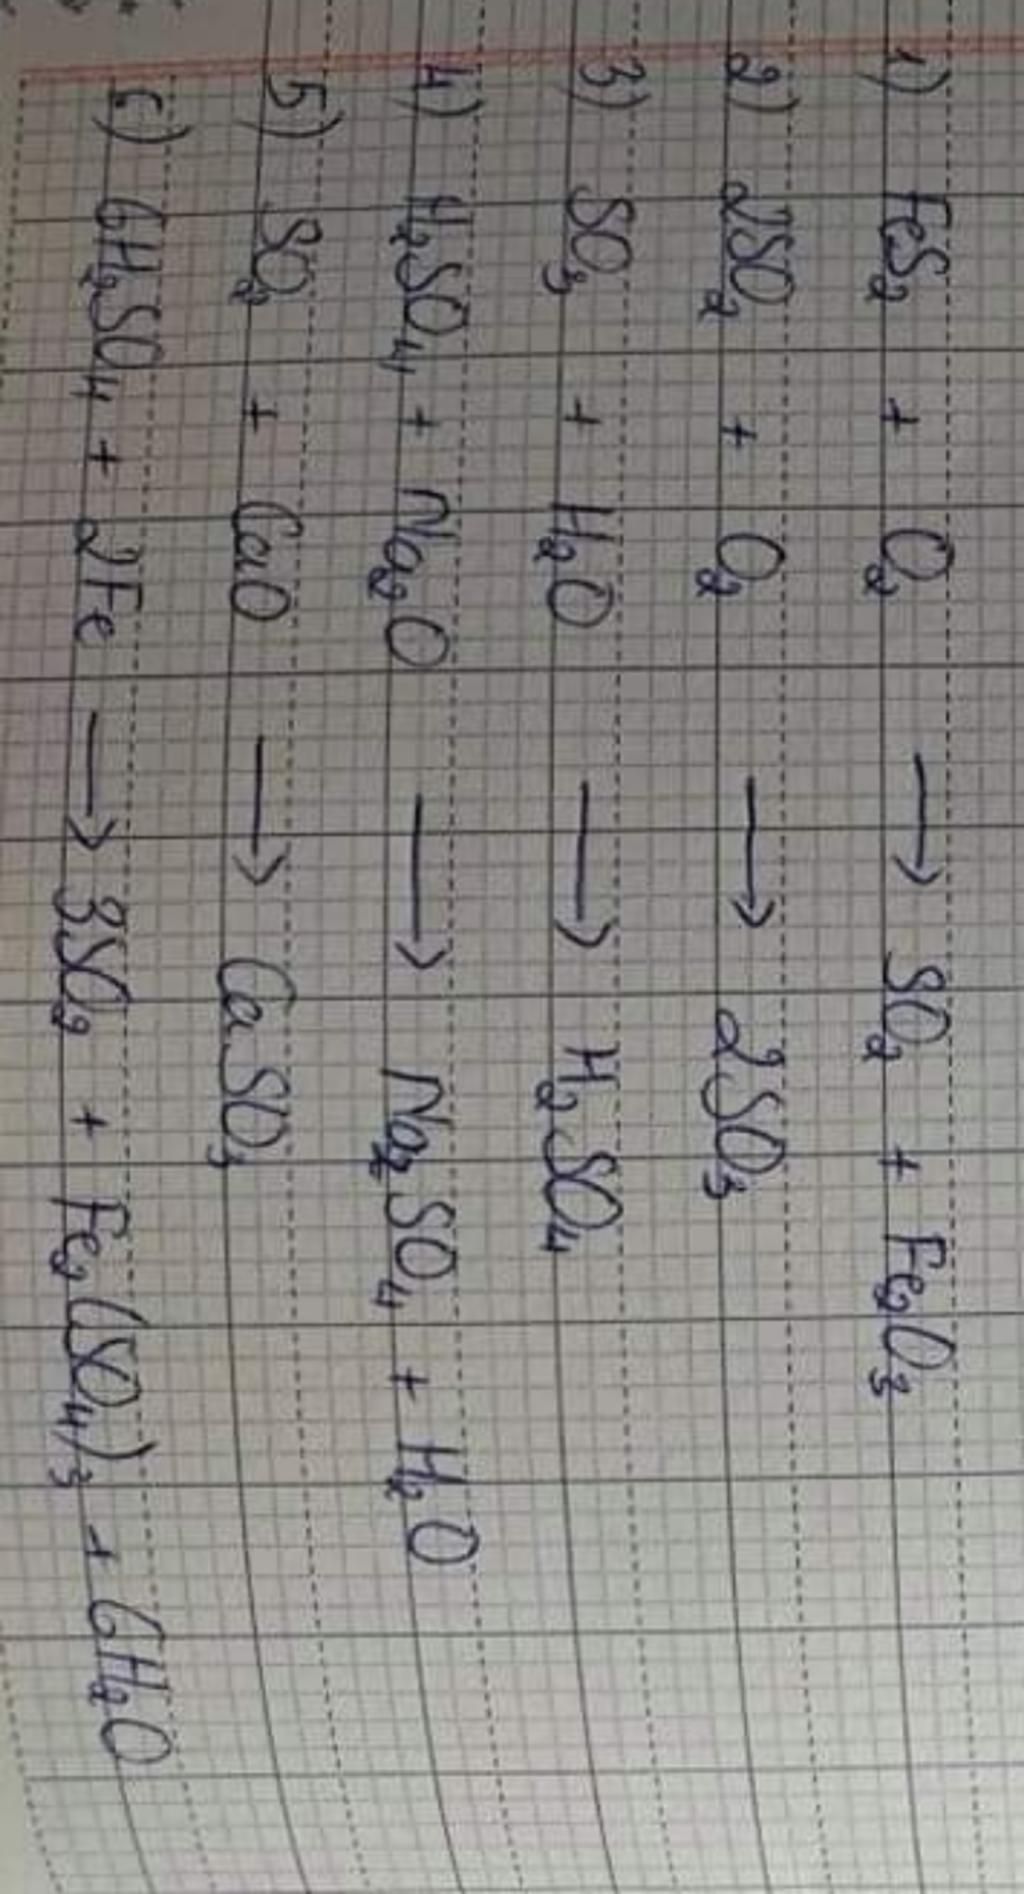 1) FeS₂ + O₂ → SO₂ + Fe₂O₃
2) 2SO₂ + O₂ → 2SO₃
3) SO₃ + H₂O → H₂SO₄
4) H₂SO₄ + Na₂O → Na₂SO₄ + H₂O
5) SO₂ + CaO → CaSO₃
6) 6H₂SO₄ + 2Fe → 3SO₂ + Fe₂(SO₄)₃ + 6H₂O